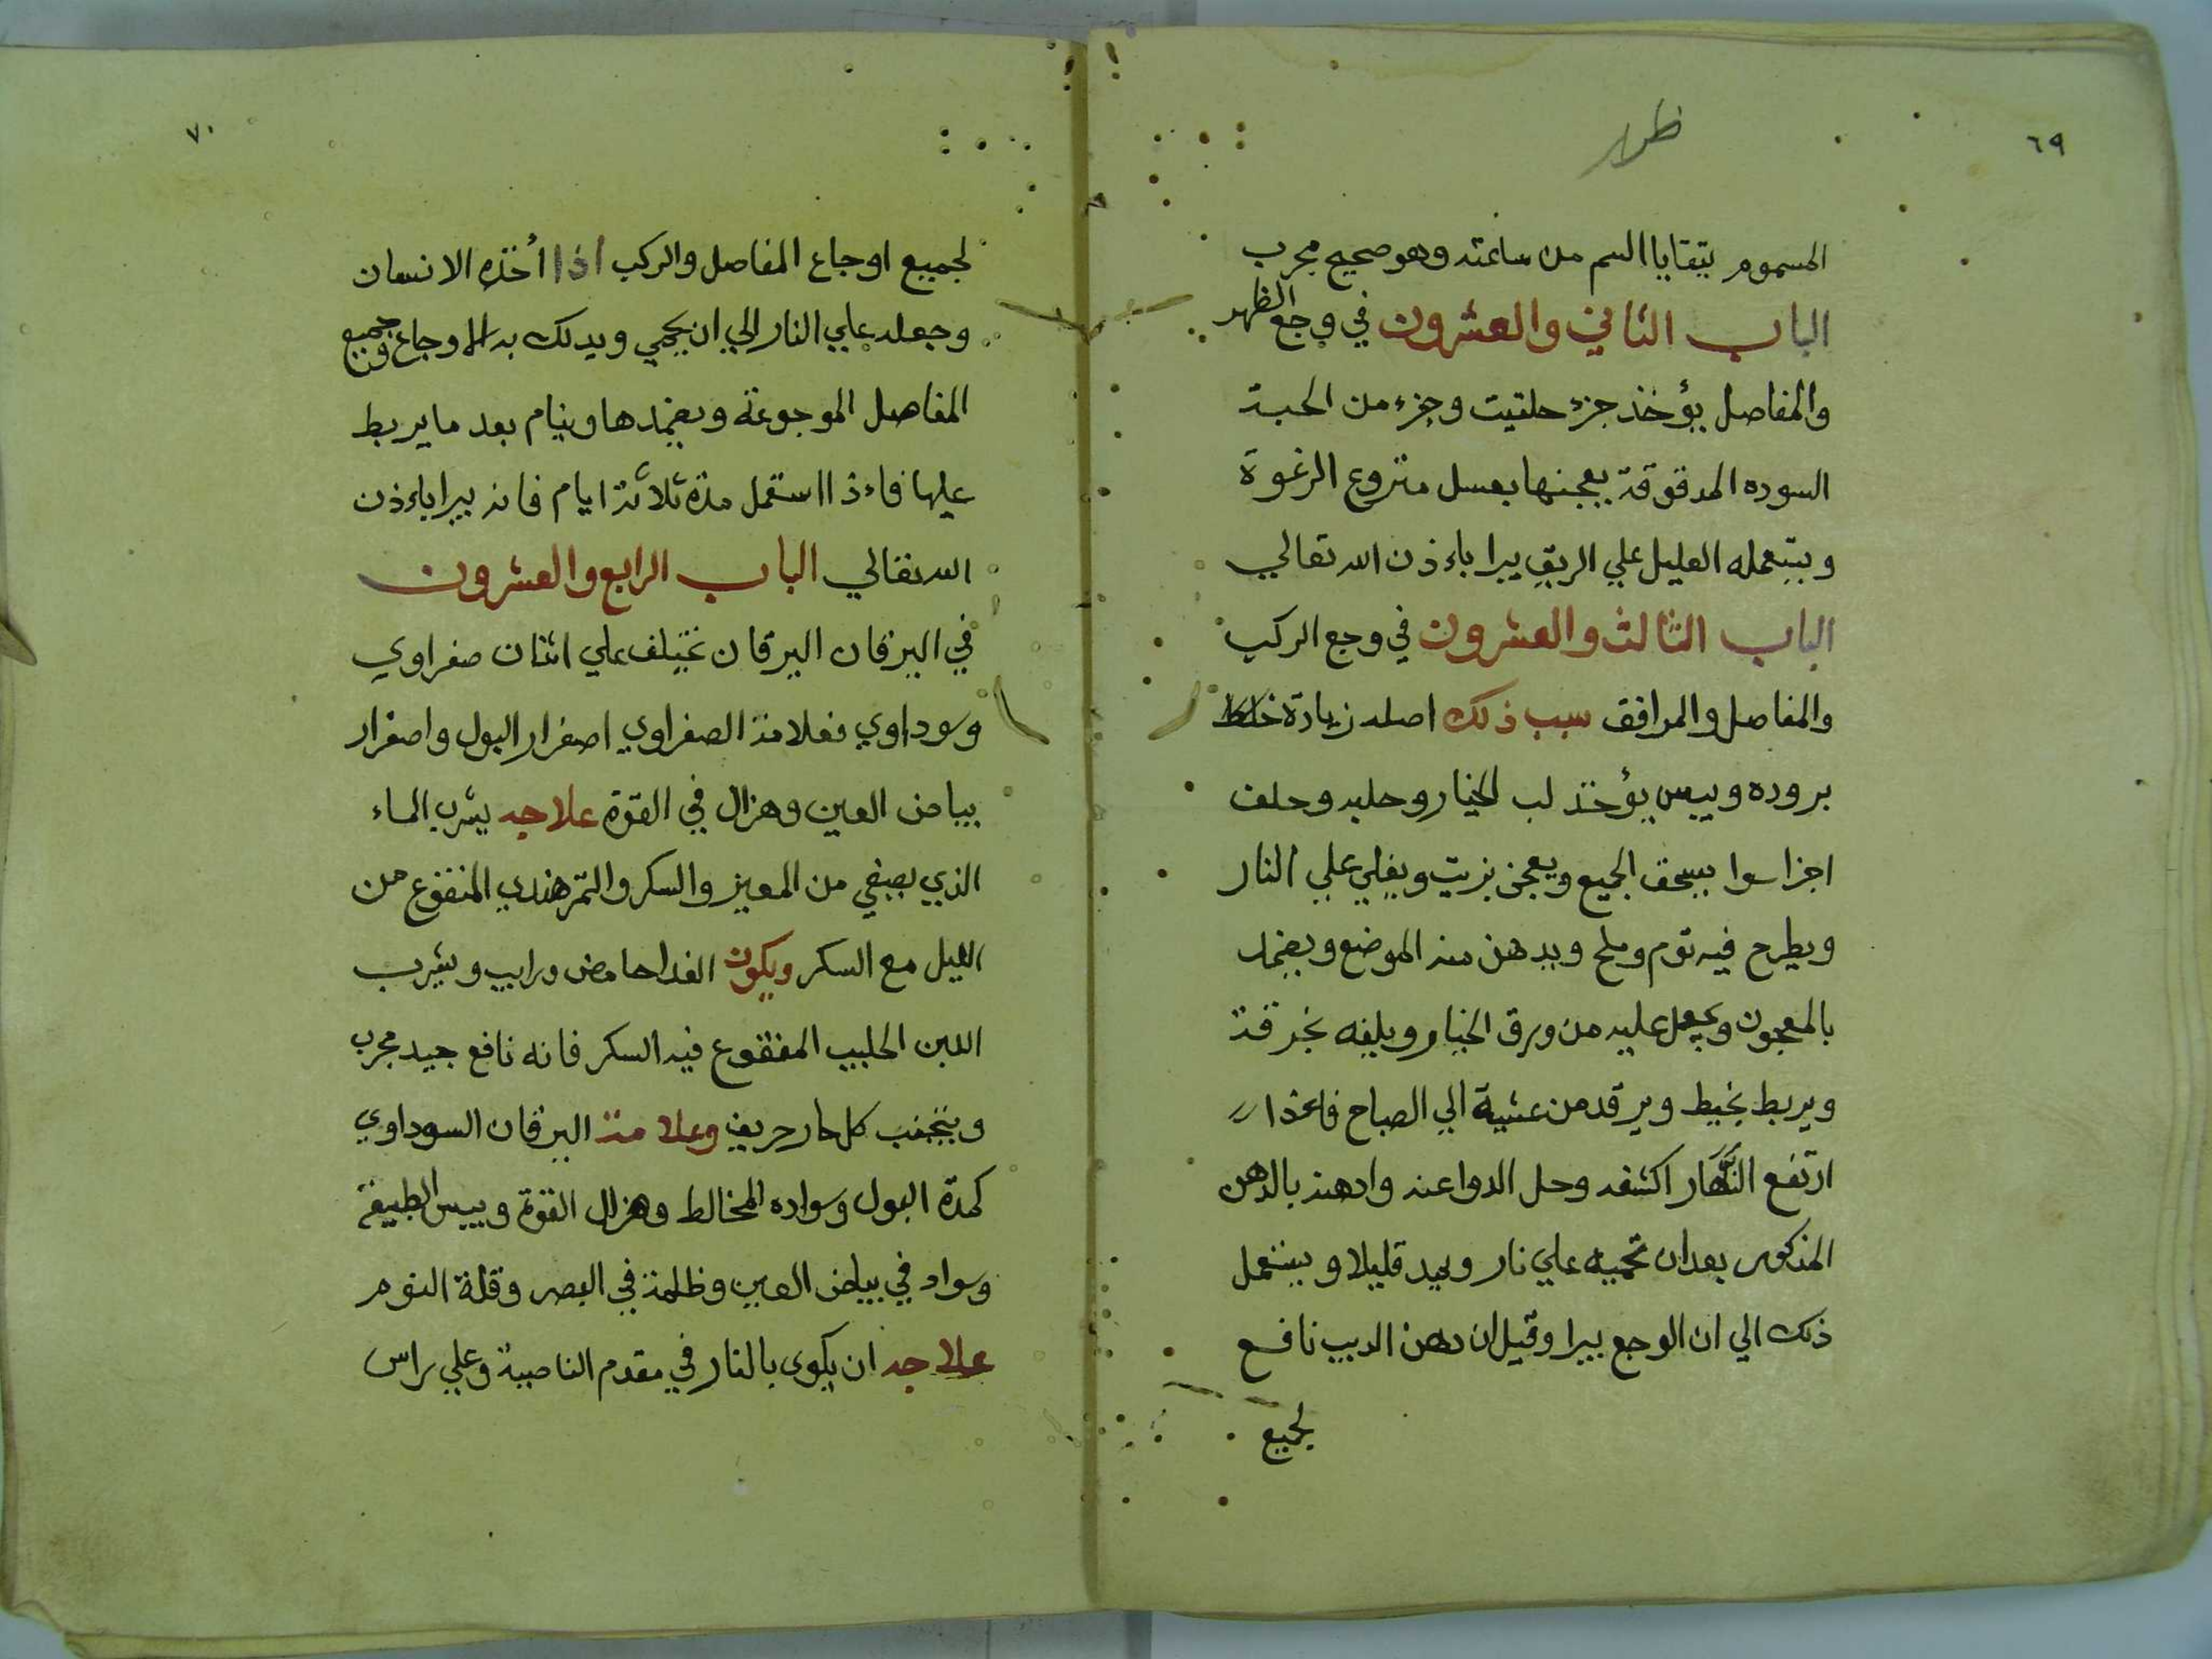 ٦٩
ظهر
المسموم يتقايا السم من ساعته وهو صحيح مجرب
الباب الثاني والعشرون في وجع الظهر
والمفاصل يؤخذ جزء حلتيت وجزء من الحبة
السوده المدقوقة يعجنها بعسل منزوع الرغوة
ويستعمله العليل علي الريق يبرا باءذن الله تعالي
الباب الثالث والعشرون في وجع الركب
والمفاصل والمرافق سبب ذلك اصله زيادة خلط
بروده ويبس يؤخذ لب الخيار وحلبه وحلف
اجزا سوا يسحق الجميع ويعجن بزيت ويغلي علي النار
ويطرح فيه توم وملح ويدهن منه الموضع ويضمد
بالمعجون ويجعل عليه من ورق الخيار ويلفه بخرقة
ويربط بخيط ويرقد من عشية الي الصباح فاءذا
ارتفع النهار اكشفه وحل الدوا عنه وادهنه بالدهن
المذكور بعد ان تحميه علي نار وليد قليلا ويستعمل
ذلك الي ان الوجع يبرا وقيل ان دهن الدبب نافع
لجميع
٧٠
لجميع اوجاع المفاصل والركب اذا أخذه الانسان
وجعله علي النار الي ان يحمي ويدلك به الاوجاع وجميع
المفاصل الموجوعة ويضمدها وينام بعد ما يربط
عليها فاءذا استعمل مدة ثلاثة ايام فانه يبرا باءذن
الله تعالي الباب الرابع والعشرون
في اليرقان اليرقان تختلف علي اثنان صفراوي
وسوداوي فعلامة الصفراوي اصفرار البول واصفرار
بياض العين وهزال في القوة علاجه يشرب الماء
الذي يصفي من المعيز والسكر والتمرهندي المنقوع من
الليل مع السكر ويكون الغدا حامض ورايب ويشرب
اللبن الحليب المنقوع فيه السكر فانه نافع جيد مجرب
ويتجنب كل حار حريف وعلامة اليرقان السوداوي
كمدة البول وسواده المخالط وهزال القوة ويبس الطبيعة
وسواد في بياض العين وظلمة في البصر وقلة النوم
علاجه ان يكوي بالنار في مقدم الناصية وعلي راس